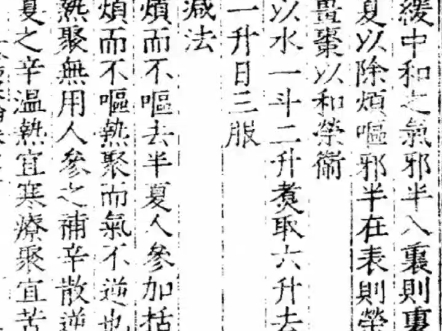 緩中和之氣邪半入裏則裏
夏以除煩嘔邪半在表則榮
薑棗以和榮衛
以水一斗二升煑取六升去
一升日三服
減法
煩而不嘔去半夏人參加括
煩而不嘔熱聚而氣不逆也
熱聚無用人參之補辛散逆
夏之辛温熱宜寒療聚宜苦